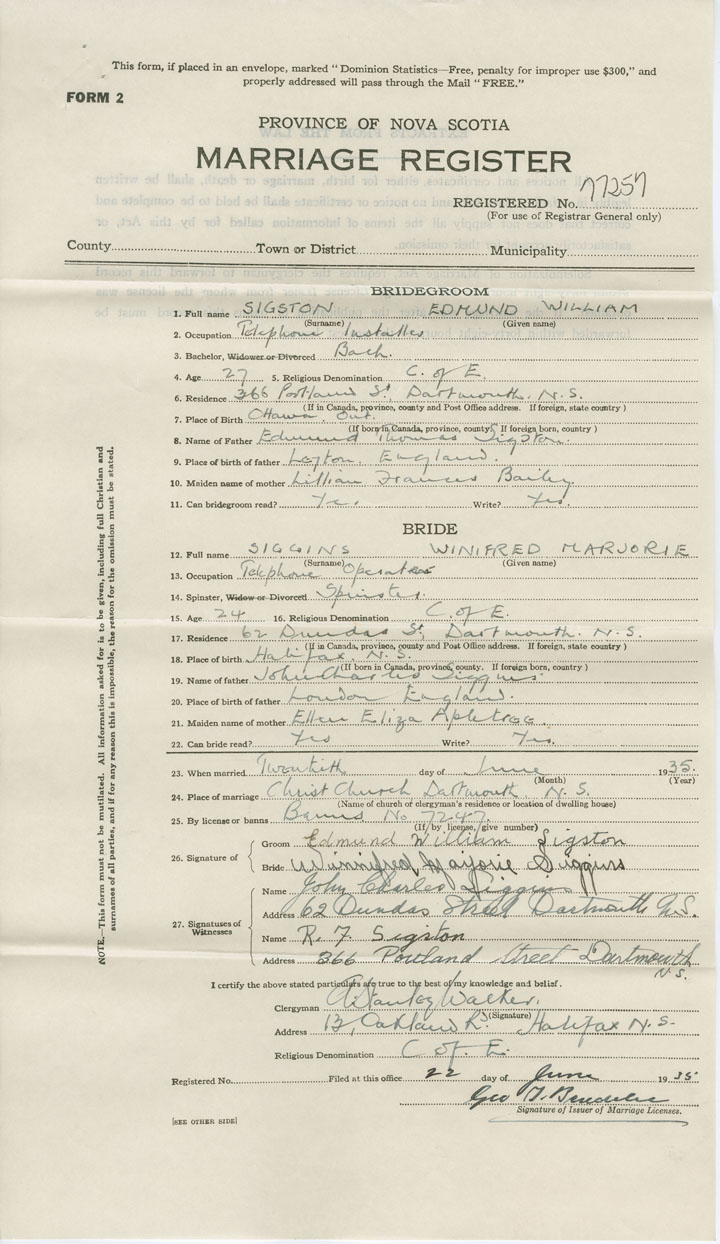 This form, if placed in an envelope, marked "Dominion Statistics—Free, penalty for improper use $300," and
properly addressed will pass through the Mail "FREE."
FORM 2
PROVINCE OF NOVA SCOTIA
MARRIAGE REGISTER
REGISTERED No. 77257
(For use of Registrar General only)
County Town or District Municipality
BRIDEGROOM
1. Full name SIGSTON EDMUND WILLIAM
(Surname) (Given name)
2. Occupation Telephone Installer
3. Bachelor, Widower or Divorced Bach.
4. Age 27 5. Religious Denomination C. of E.
6. Residence 366 Portland St, Dartmouth. N.S.
(If in Canada, province, county and Post Office address. If foreign, state country)
7. Place of Birth Ottawa Ont.
(If born in Canada, province, county. If foreign born, country)
8. Name of Father Edmund Thomas Sigston.
9. Place of birth of father Leyton, England.
10. Maiden name of mother Lillian Frances Bailey
11. Can bridegroom read? Yes. Write? Yes.
BRIDE
12. Full name SIGGINS WINIFRED MARJORIE
(Surname) (Given name)
13. Occupation Telephone Operator
14. Spinster, Widow or Divorced Spinster.
15. Age 24 16. Religious Denomination C. of E.
17. Residence 62 Dundas St, Dartmouth. N.S.
(If in Canada, province, county and Post Office address. If foreign, state country)
18. Place of birth Halifax, N.S.
(If born in Canada, province, county. If foreign born, country)
19. Name of father John Charles Siggins.
20. Place of birth of father London England.
21. Maiden name of mother Ellen Eliza Apletree.
22. Can bride read? Yes Write? Yes.
23. When married Twentieth day of June 1935.
(Month) (Year)
24. Place of marriage Christ Church Dartmouth N.S.
(Name of church or clergyman's residence or location of dwelling house)
25. By license or banns Banns No 7247.
(If by license, give number)
26. Signature of
Groom Edmund William Sigston
Bride Winnifred Marjorie Siggins
27. Signatures of Witnesses
Name John Charles Siggins
Address 62 Dundas Street Dartmouth N.S.
Name R. F Sigston
Address 366 Portland Street Dartmouth
N.S.
I certify the above stated particulars are true to the best of my knowledge and belief.
Clergyman Stanley Walker.
(Signature)
Address 13, Oakland Rd. Halifax N.S.
Religious Denomination C. of. E.
Registered No. Filed at this office 22 day of June 1935
Geo
Signature of Issuer of Marriage Licenses.
[SEE OTHER SIDE]
NOTE.—This form must not be mutilated. All information asked for is to be given, including full Christian and
surnames of all parties, and if for any reason this is impossible, the reason for the omission must be stated.